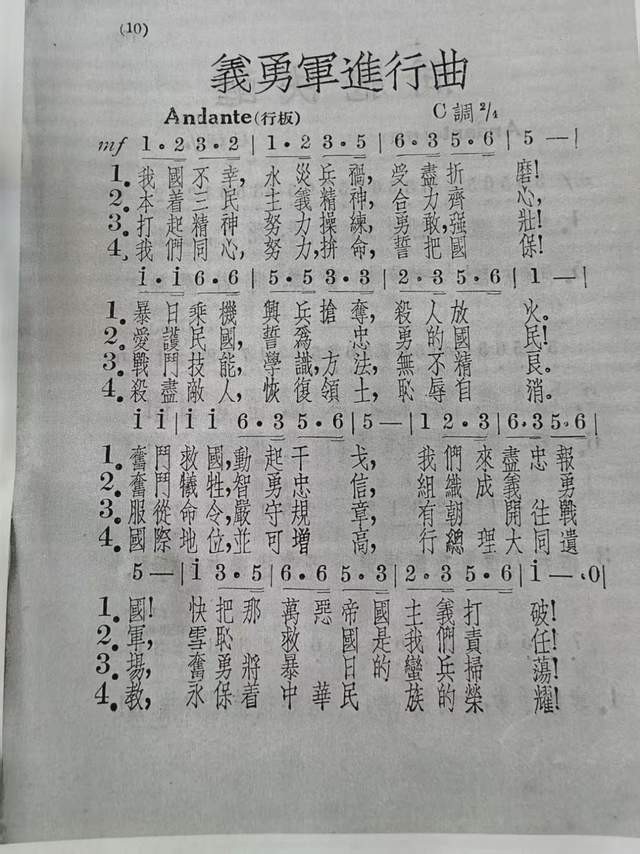 (10)
義勇軍進行曲
Andante(行板) C調 2/4
mf 1・2 3・2 | 1・2 3・5 | 6・3 5・6 | 5 — |
1. 我國不幸,水災兵禍,受盡折磨!
2. 本着三民主義精神,合力齊心,
3. 打起精神努力操練,勇敢,强壯!
4. 我們同心,努力,拚命,誓把國保!
i・i 6・6 | 5・5 3・3 | 2・3 5・6 | 1 — |
1. 暴日乘機興兵搶奪,殺人放火。
2. 愛護民國,誓爲忠勇的國民!
3. 戰鬥技能,學識,方法,無不精良。
4. 殺盡敵人,恢復領土,恥辱自消。
i i | i i 6・3 5・6 | 5 — | 1 2・3 | 6・3 5・6 |
1. 奮鬥救國,動起干戈,我們來盡忠報
2. 奮鬥犧牲,智勇忠信,組織成義勇
3. 服從命令,嚴守規章,有朝開往戰
4. 國際地位,並可增高,行總理大同遺
5 — | i 3・5 | 6・6 5・3 | 2・3 5・6 | i — ・0 |
1. 國!快把那萬惡帝國主義打破!
2. 軍,雪恥救國是我們責任!
3. 場,奮勇將暴日的蠻兵掃蕩!
4. 教,永保着中華民族的榮耀!